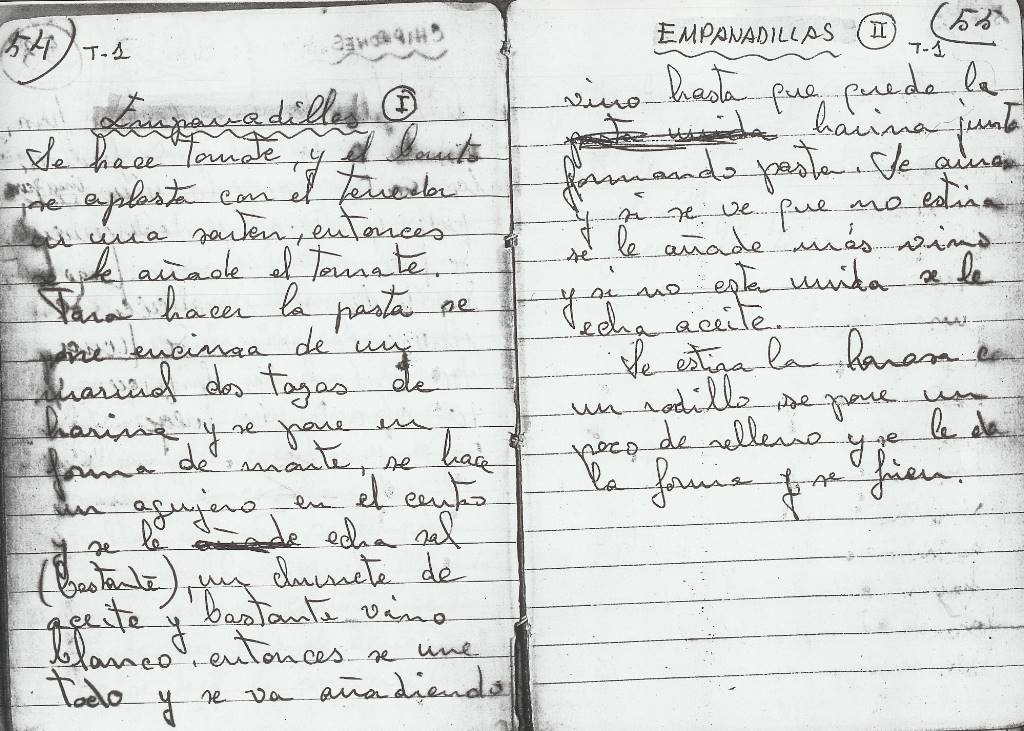 54
T-1
Empanadillas I
Se hace tomate, y el bonito
se aplasta con el tenedor
en una sarten, entonces
se le añade el tomate.
Para hacer la pasta se
pone encimaa de un
marmol dos tazas de
harina y se pone en
forma de monte, se hace
un agujero en el centro
y se le añade echa sal
(bastante), un chorrete de
aceite y bastante vino
blanco, entonces se une
todo y se va añadiendo
CHIPIRONES
55
EMPANADILLAS II
T-1
vino hasta que quede la
pasta unida harina junta
formando pasta. Se amasa
y si se ve que no estira
se le añade más vino
y si no está unida se le
echa aceite.
Se estira la
un rodillo, se pone un
poco de relleno y se le da
la forma y se fríen.